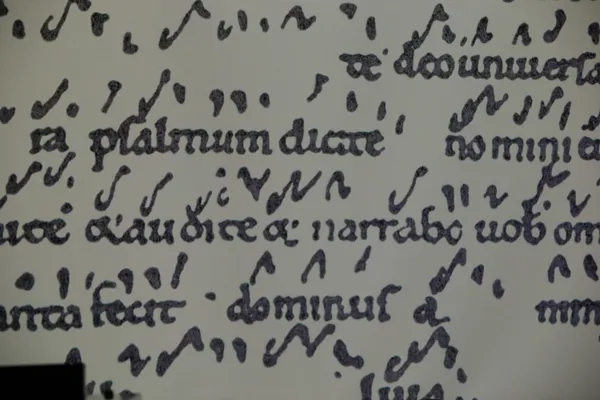 te deo uniuersa
ra psalmum dicite nomini ei
nite & audite & narrabo uob om
anta fecit dominus a